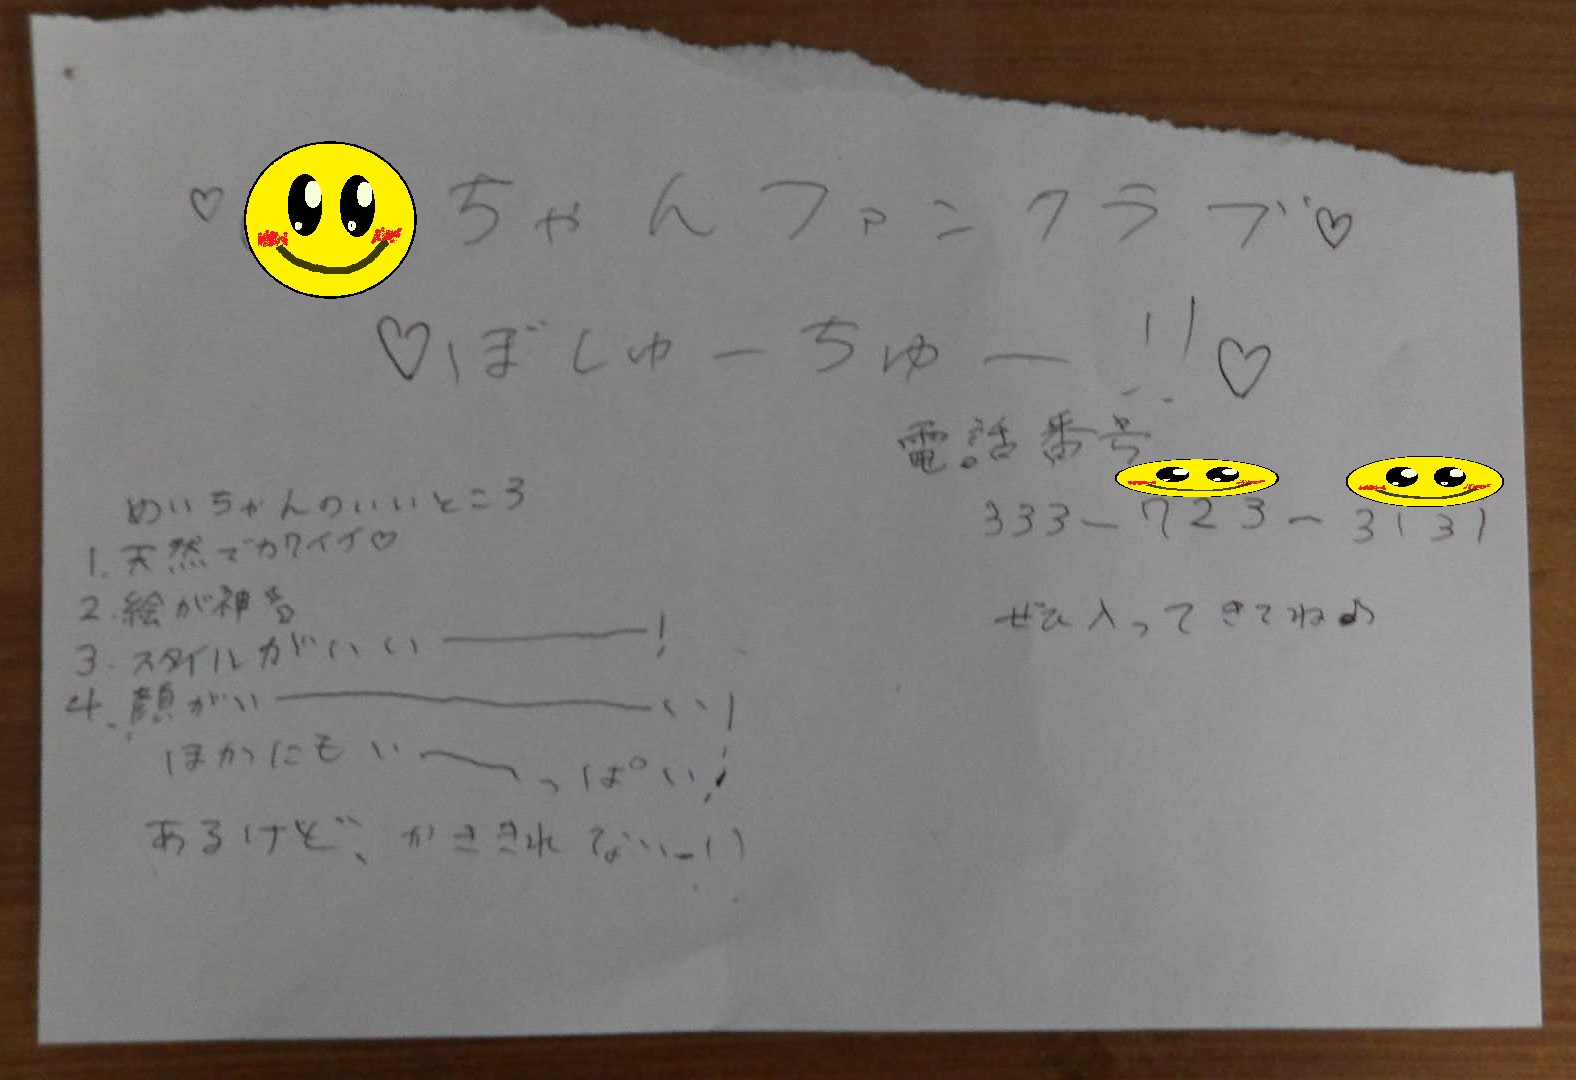 ♡ ちゃんファンクラブ♡
♡ぼしゅーちゅー!!♡
電話番号
333-723-3131
ぜひ入ってきてね♪
めいちゃんのいいところ
1.天然でカワイイ♡
2.絵が神
3.スタイルがいい――!
4.顔がい――いい!
ほかにもい――っぱい!
あるけど、かききれないー!!